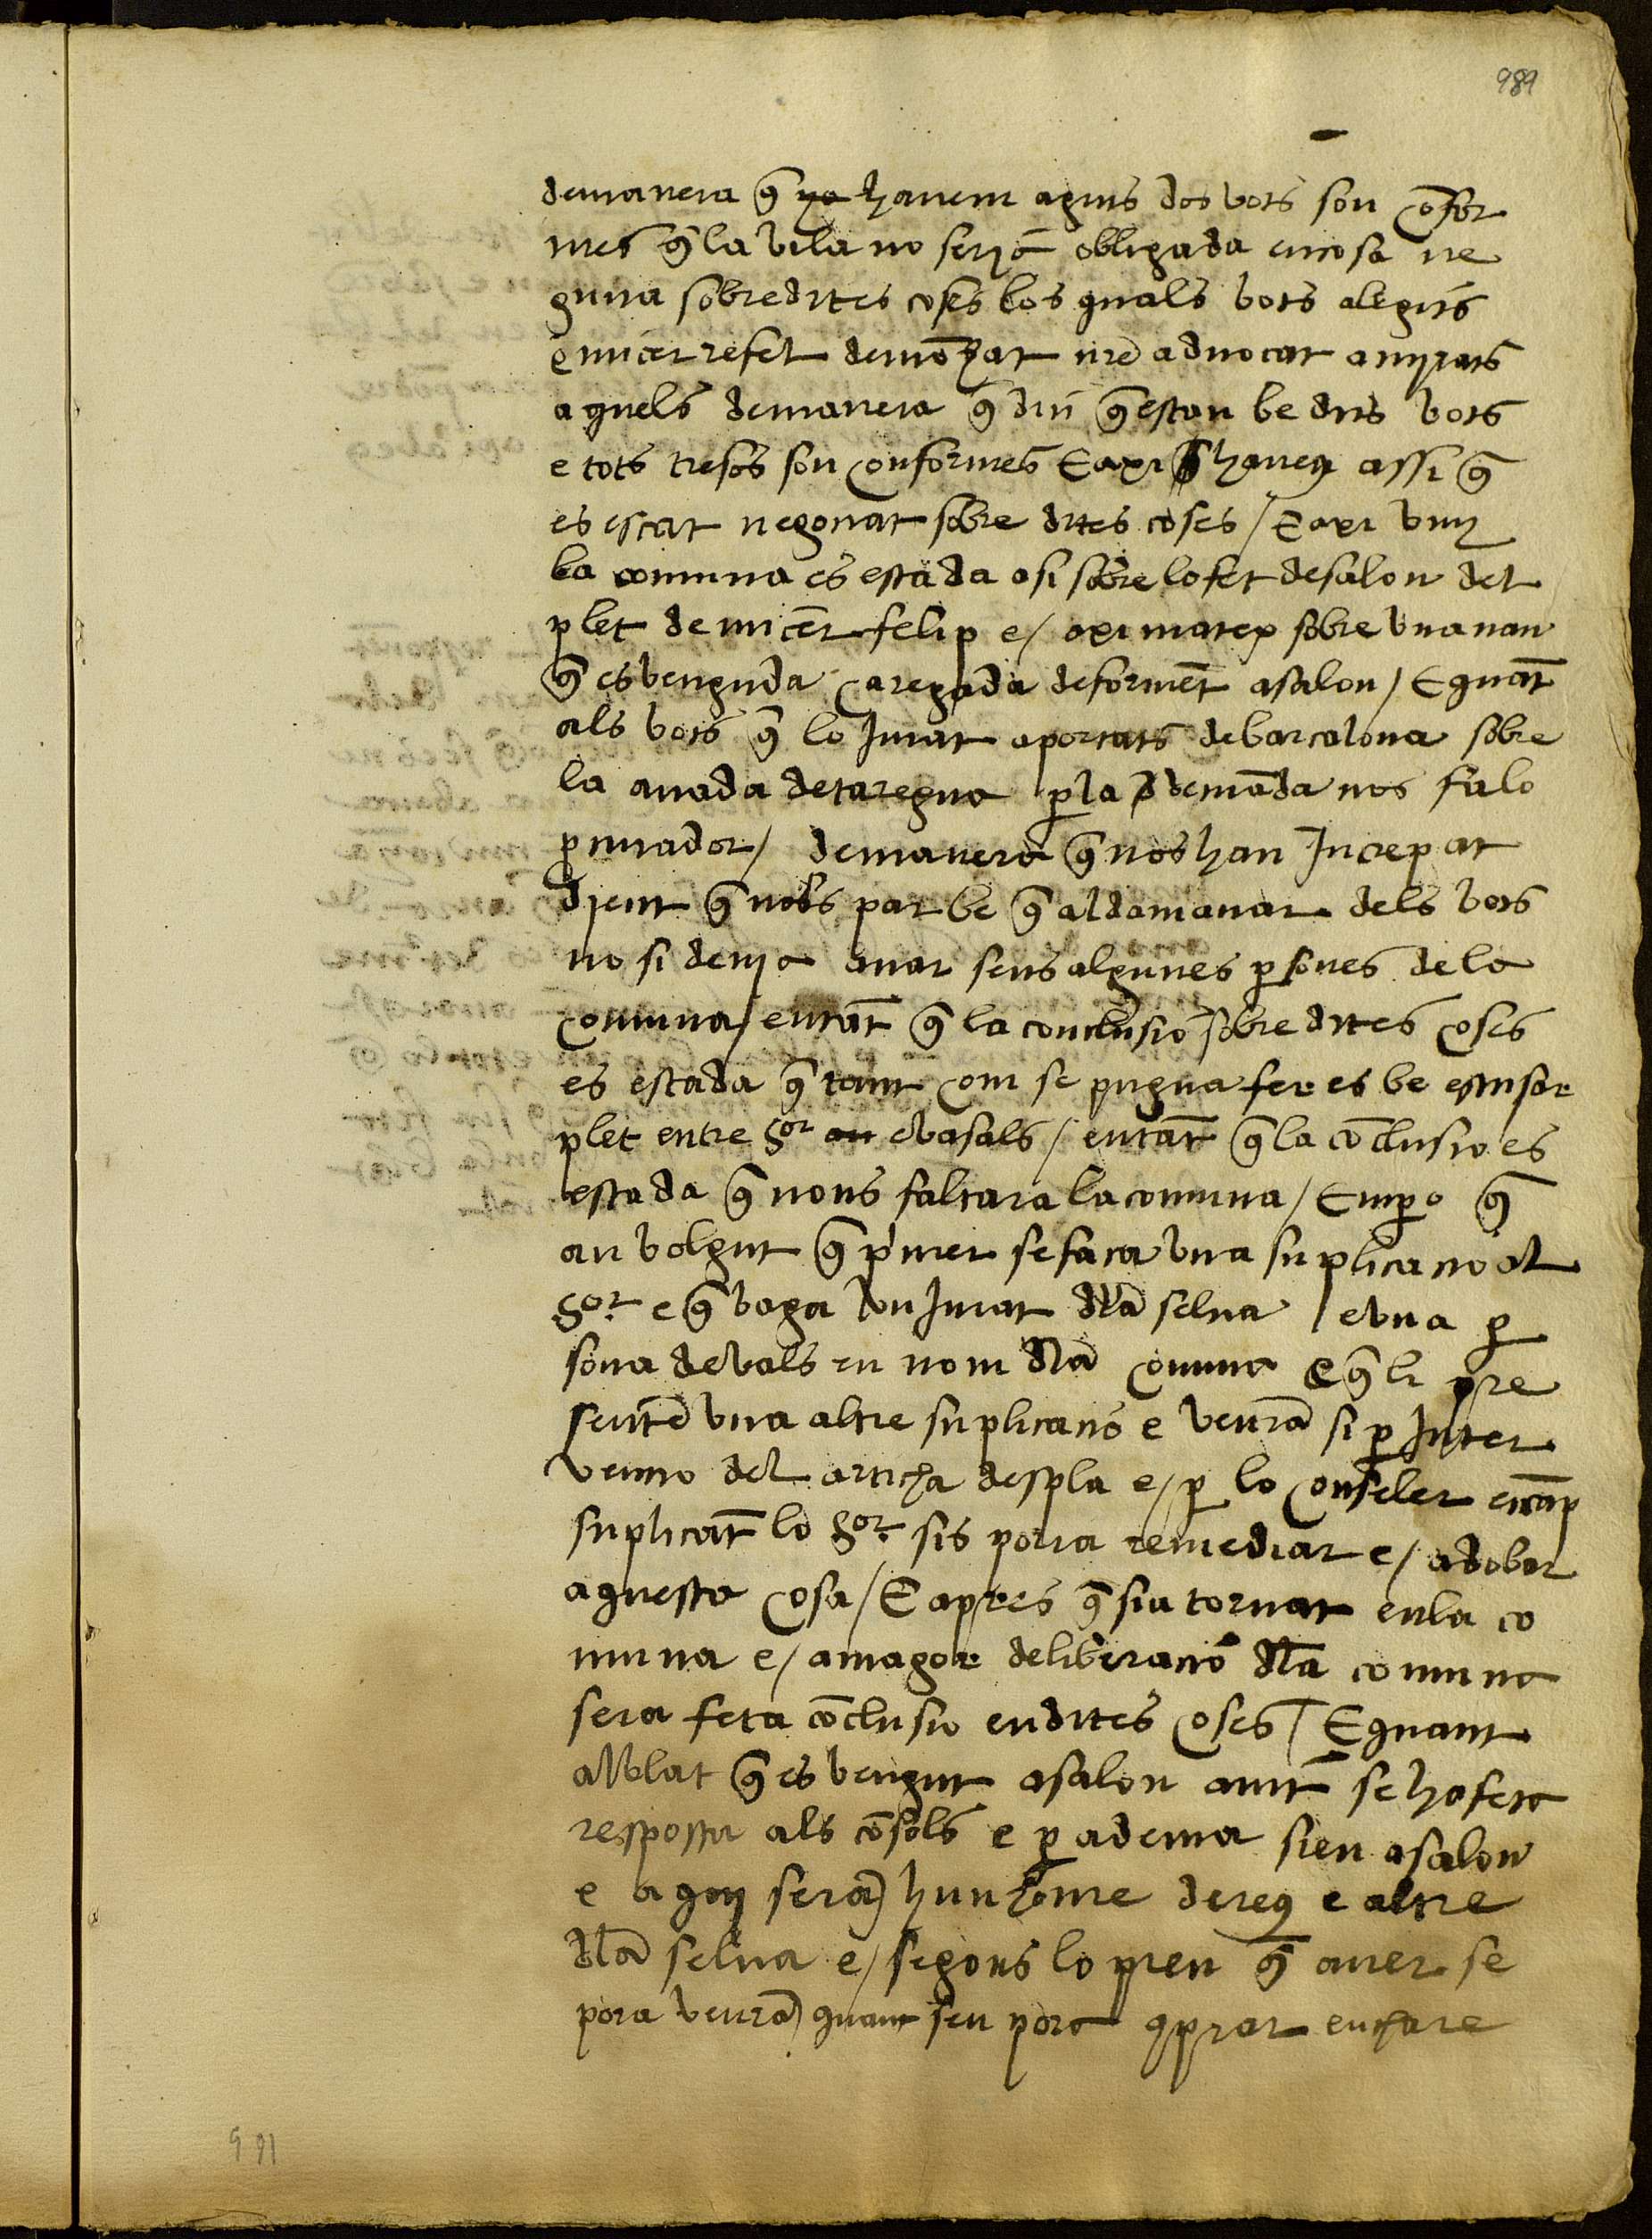 989
demanera q̄ ya havem aguts dos vots son cōfor
mes q̄ la vila no seria obligada en cosa ne
guna sobredites coses los quals vots alegits
e micer refel demōtzat nr̄e advocat a mirats
aquels demanera q̄ diu q̄ estan be dits vots
e tots tresos son conformes E axi haveu assi q̄
es estat negociat sobre dites coses / E axi vuy
la comuna es estada asi sobre lo fet de salou del
plet de micer felip e / axi matex sobre una nau
q̄ es venguda caregada de formēt a salou / E quāt
als vots q̄ lo Jurat a portats de barcalona sobre
la anada de taregua p̄ la demāda nos fa lo
p̄curador / demanera q̄ nos han Increpat
dient q̄ nols par be q̄ al damanar dels vots
no si devia anar sens algunes p̄sones de la
comuna / entāt q̄ la conclusio sobre dites coses
es estada q̄ tant com se pugua fer es be escusar
plet entre sor e vasals / entāt q̄ la cōclusio es
estada q̄ nons faltara la comuna / Emp̄o q̄
an volgut q̄ p̄mer se faca una suplicacio al
sor e q̄ vaga un Jurat dl̄a selva / e una p̄
sona de vals en nom dl̄a comuna e q̄ li pre
sentē una altre suplicacio e veurā si p̄ Inter
vencio del articha despla e / p̄ lo conseler en cap
suplicāt lo sor sis poria remediar e / adobar
aquesta cosa / E apres q̄ sia tornat en la co
muna e / a magor deliberacio dl̄a comuna
sera feta cōclusio en dites coses / E quant
al blat q̄ es vengut a salou anit se ha feta
resposta als cōsols e p̄ a dema sien a salou
e aquy serā hun home de reus e altre
dl̄a selva e / segons lo preu q̄ aver se
pora veurā quant seu pora cōprar encare
991